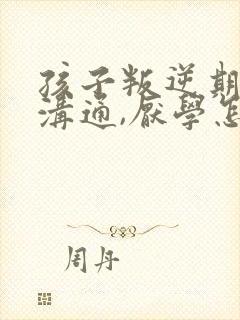 孩子叛逆期
溝通,厭學怎
周丹